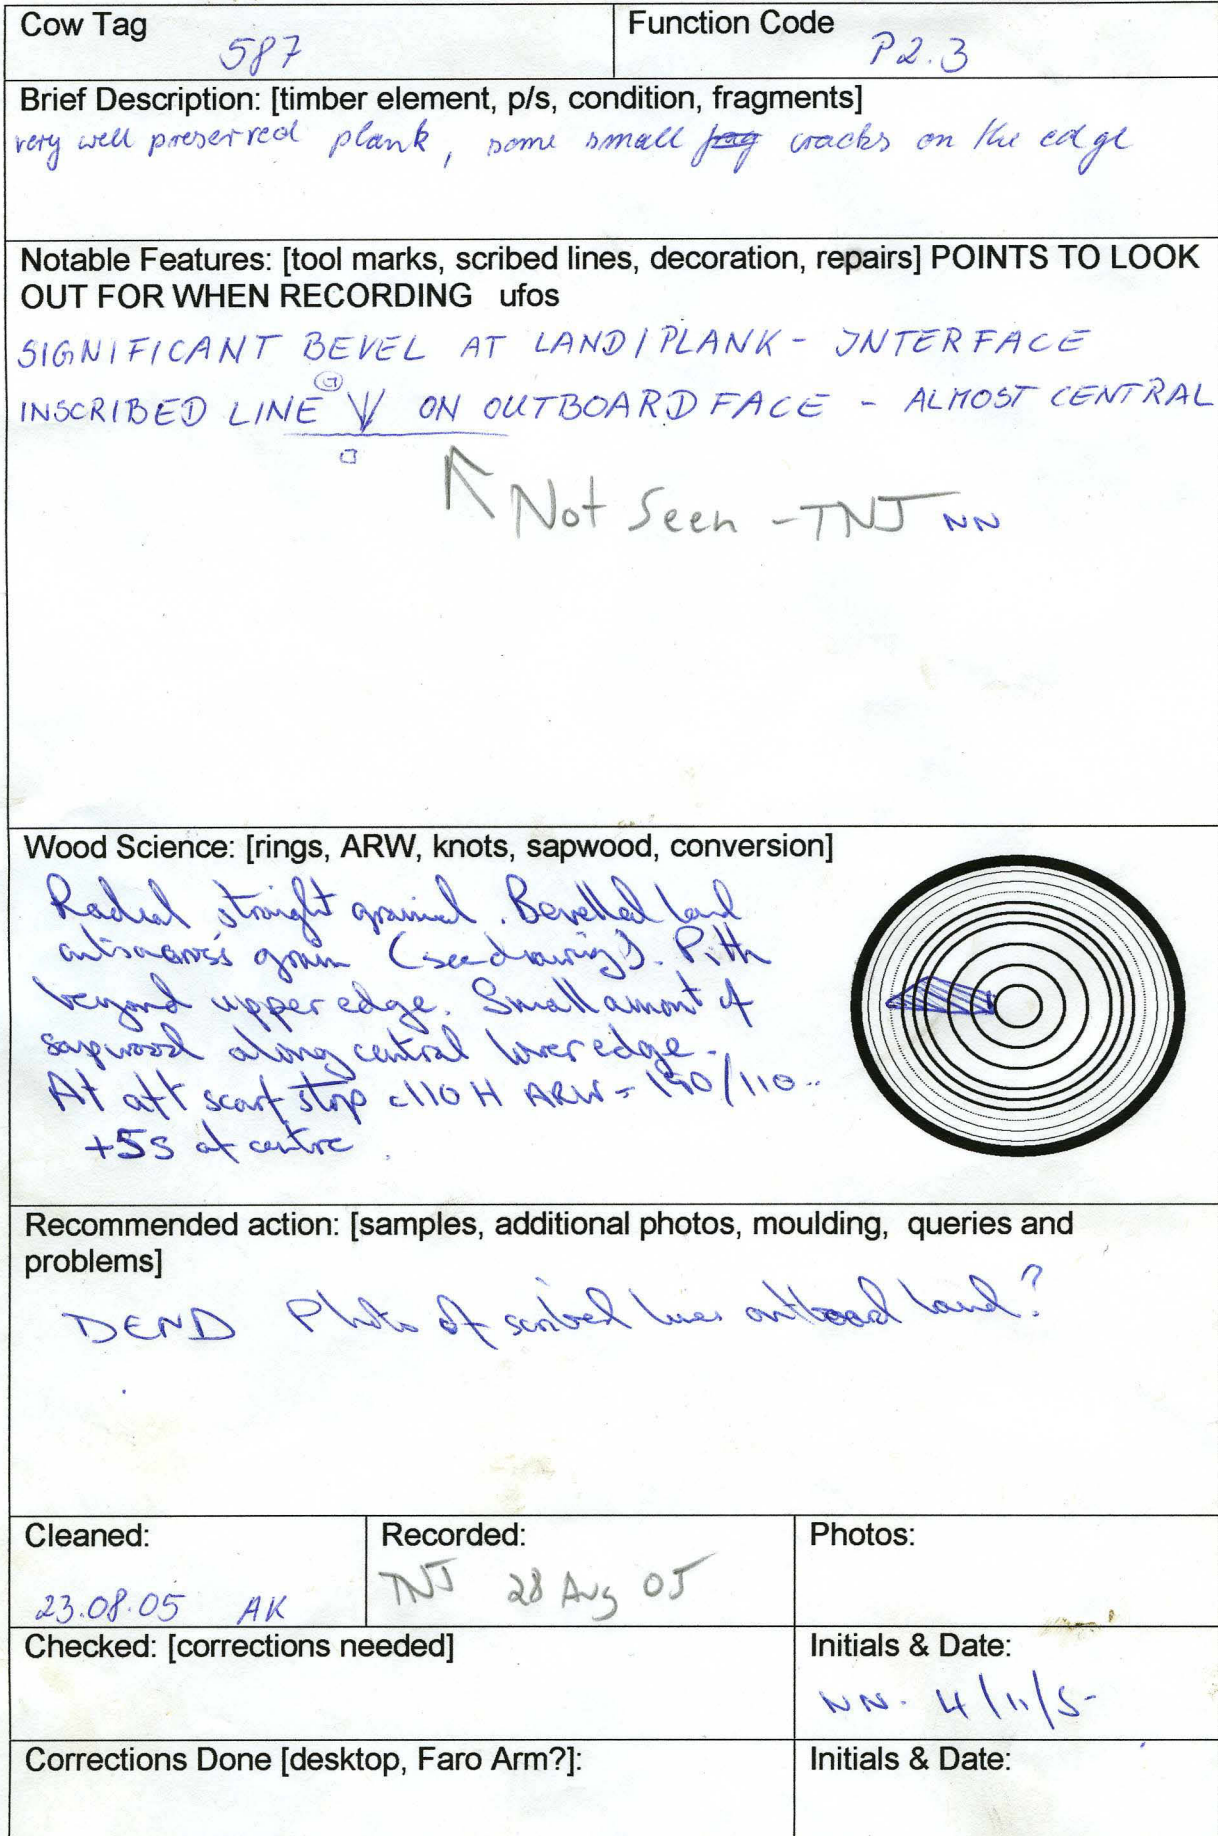 Cow Tag
587
Function Code
P2.3
Brief Description: [timber element, p/s, condition, fragments]
very well preserved plank, some small frag cracks on the edge
Notable Features: [tool marks, scribed lines, decoration, repairs] POINTS TO LOOK
OUT FOR WHEN RECORDING ufos
SIGNIFICANT BEVEL AT LAND/PLANK - INTERFACE
INSCRIBED LINE V ON OUTBOARD FACE - ALMOST CENTRAL
Not Seen - TNJ NN
Wood Science: [rings, ARW, knots, sapwood, conversion]
Radial straight grained. Bevelled land
across grain (see drawing). Pith
beyond upper edge. Small amount of
sapwood along central lower edge.
At aft scarf stop c110 H ARW = 190/110
+5S at centre.
Recommended action: [samples, additional photos, moulding, queries and
problems]
DEND Photo of scribed lines outboard land?
Cleaned:
23.08.05 AK
Recorded:
TNJ 28 Aug 05
Photos:
Checked: [corrections needed]
Initials & Date:
NN. 4/11/5-
Corrections Done [desktop, Faro Arm?]:
Initials & Date: